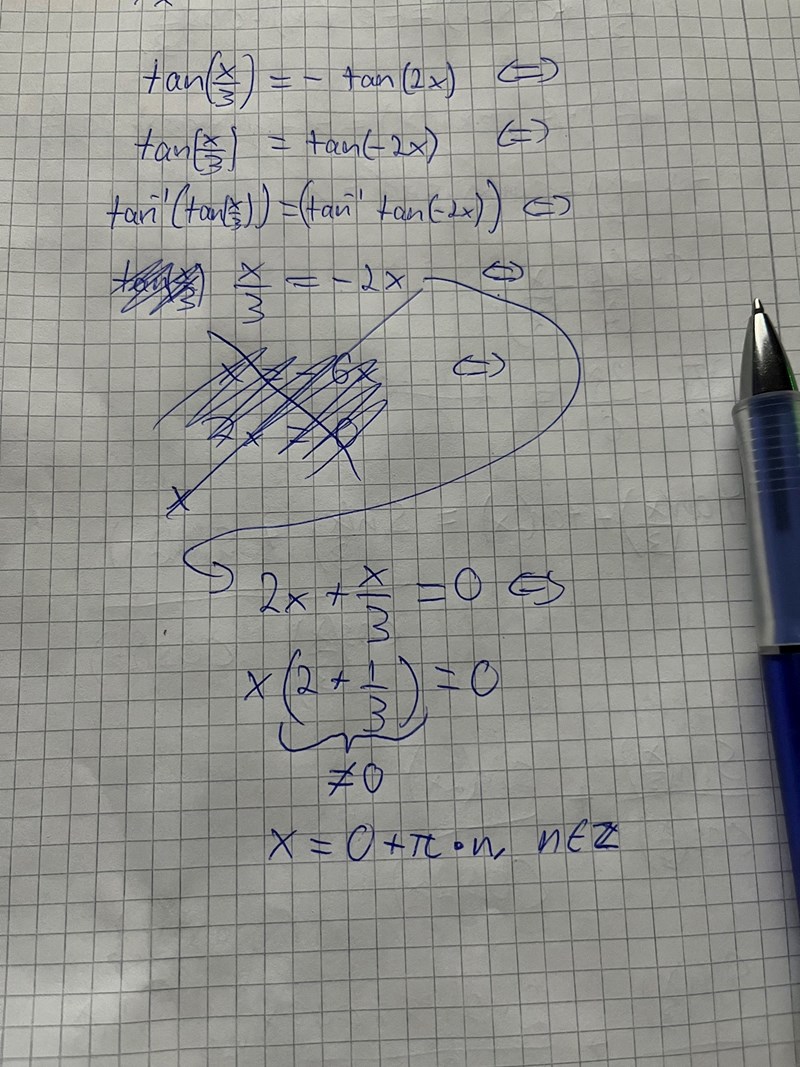 tan(x/3) = - tan(2x) ⇔
tan(x/3) = tan(-2x) ⇔
tan⁻¹(tan(x/3)) = (tan⁻¹ tan(-2x)) ⇔
x/3 = -2x ⇔
x = -6x ⇔
7x = 0
x
2x + x/3 = 0 ⇔
x(2 + 1/3) = 0
≠0
x = 0 + π·n, n∈ℤ